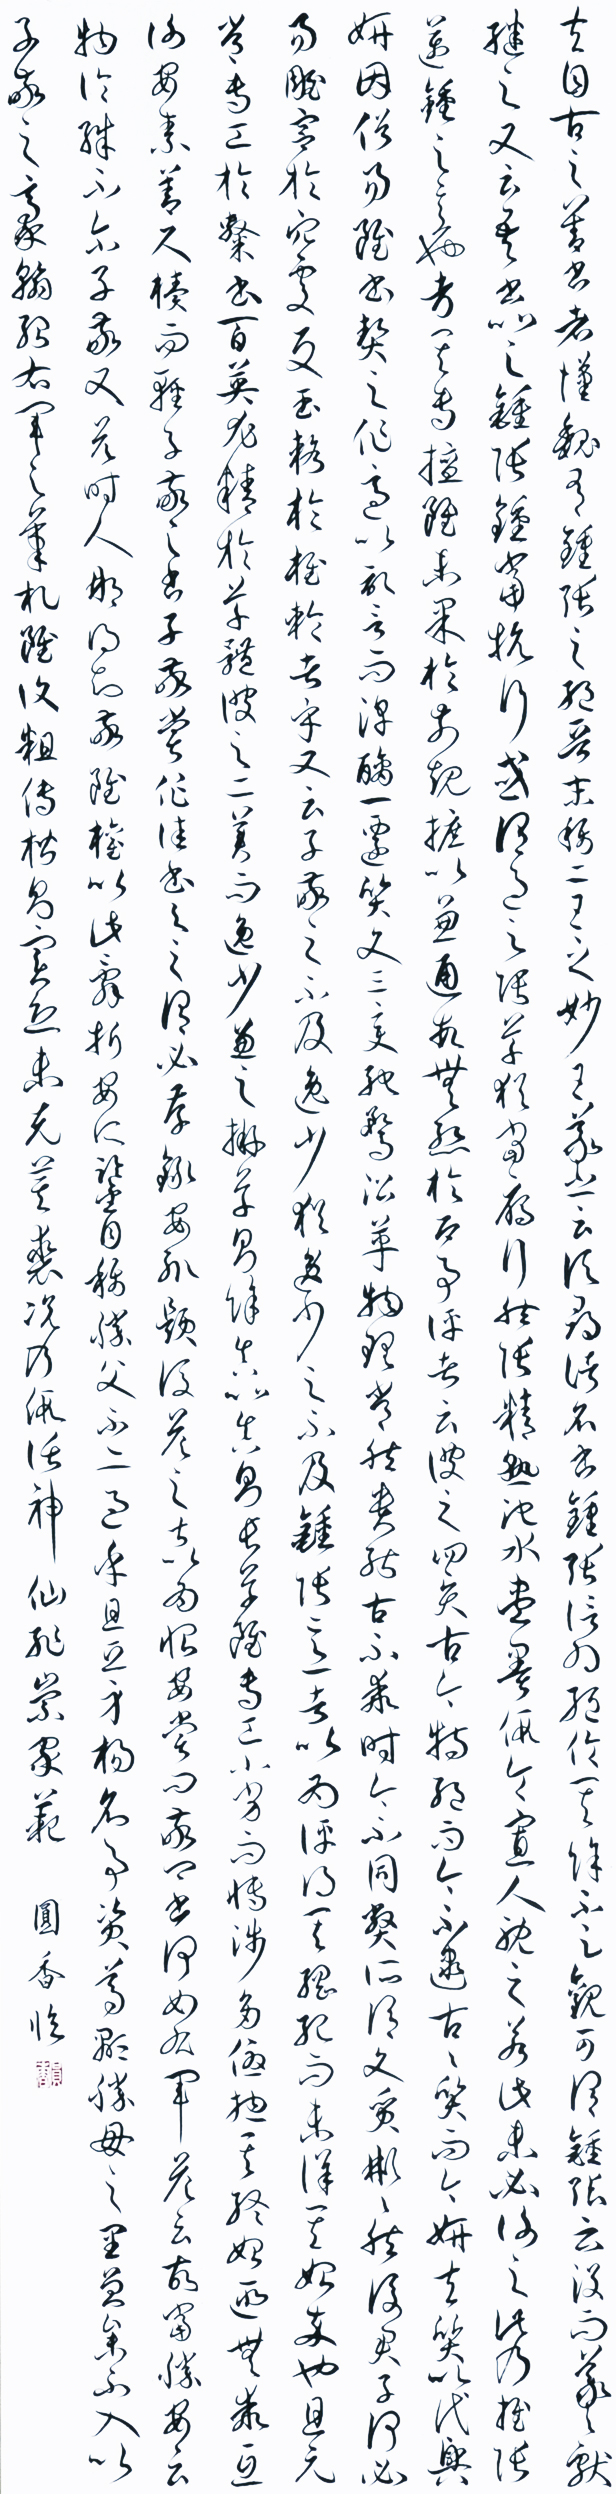 夫自古之善書者漢魏有鍾張之絕晉末稱二王之妙王羲之云頃尋諸名書鍾張信為絕倫其餘不足觀可謂鍾張云沒而羲獻
繼之又云吾書比之鍾張鍾當抗行或謂過之張草猶當雁行然張精熟池水盡墨假令寡人耽之若此未必謝之此乃推張
邁鍾之意也考其專擅雖未果於前規摭以兼通故無慚於即事評者云彼之四賢古今特絕而今不逮古古質而今妍夫質以代興
妍因俗易雖書契之作適以記言而淳醨一遷質文三變馳騖沿革物理常然貴能古不乖時今不同弊所謂文質彬彬然後君子何必
易雕宮於穴處反玉輅於椎輪者乎又云子敬之不及逸少猶逸少之不及鍾張意者以為評得其綱紀而未詳其始卒也且元
常專工於隸書百英尤精於草體彼之二美而逸少兼之擬草則餘真比真則長草雖專工小劣而博涉多優總其終始匪無乖互
謝安素善尺牘而輕子敬之書子敬嘗作佳書與之謂必存錄安輒題後答之甚以為恨安嘗問敬卿書何如右軍答云故當勝安云
物論殊不爾子敬又答時人那得知敬雖權以此辭折安所鑒自稱勝父不亦過乎且立身揚名事資尊顯勝母之里曾參不入以
子敬之豪翰紹右軍之筆札雖復粗傳楷則實恐未克箕裘況乃假託神仙恥崇家範 圓香臨